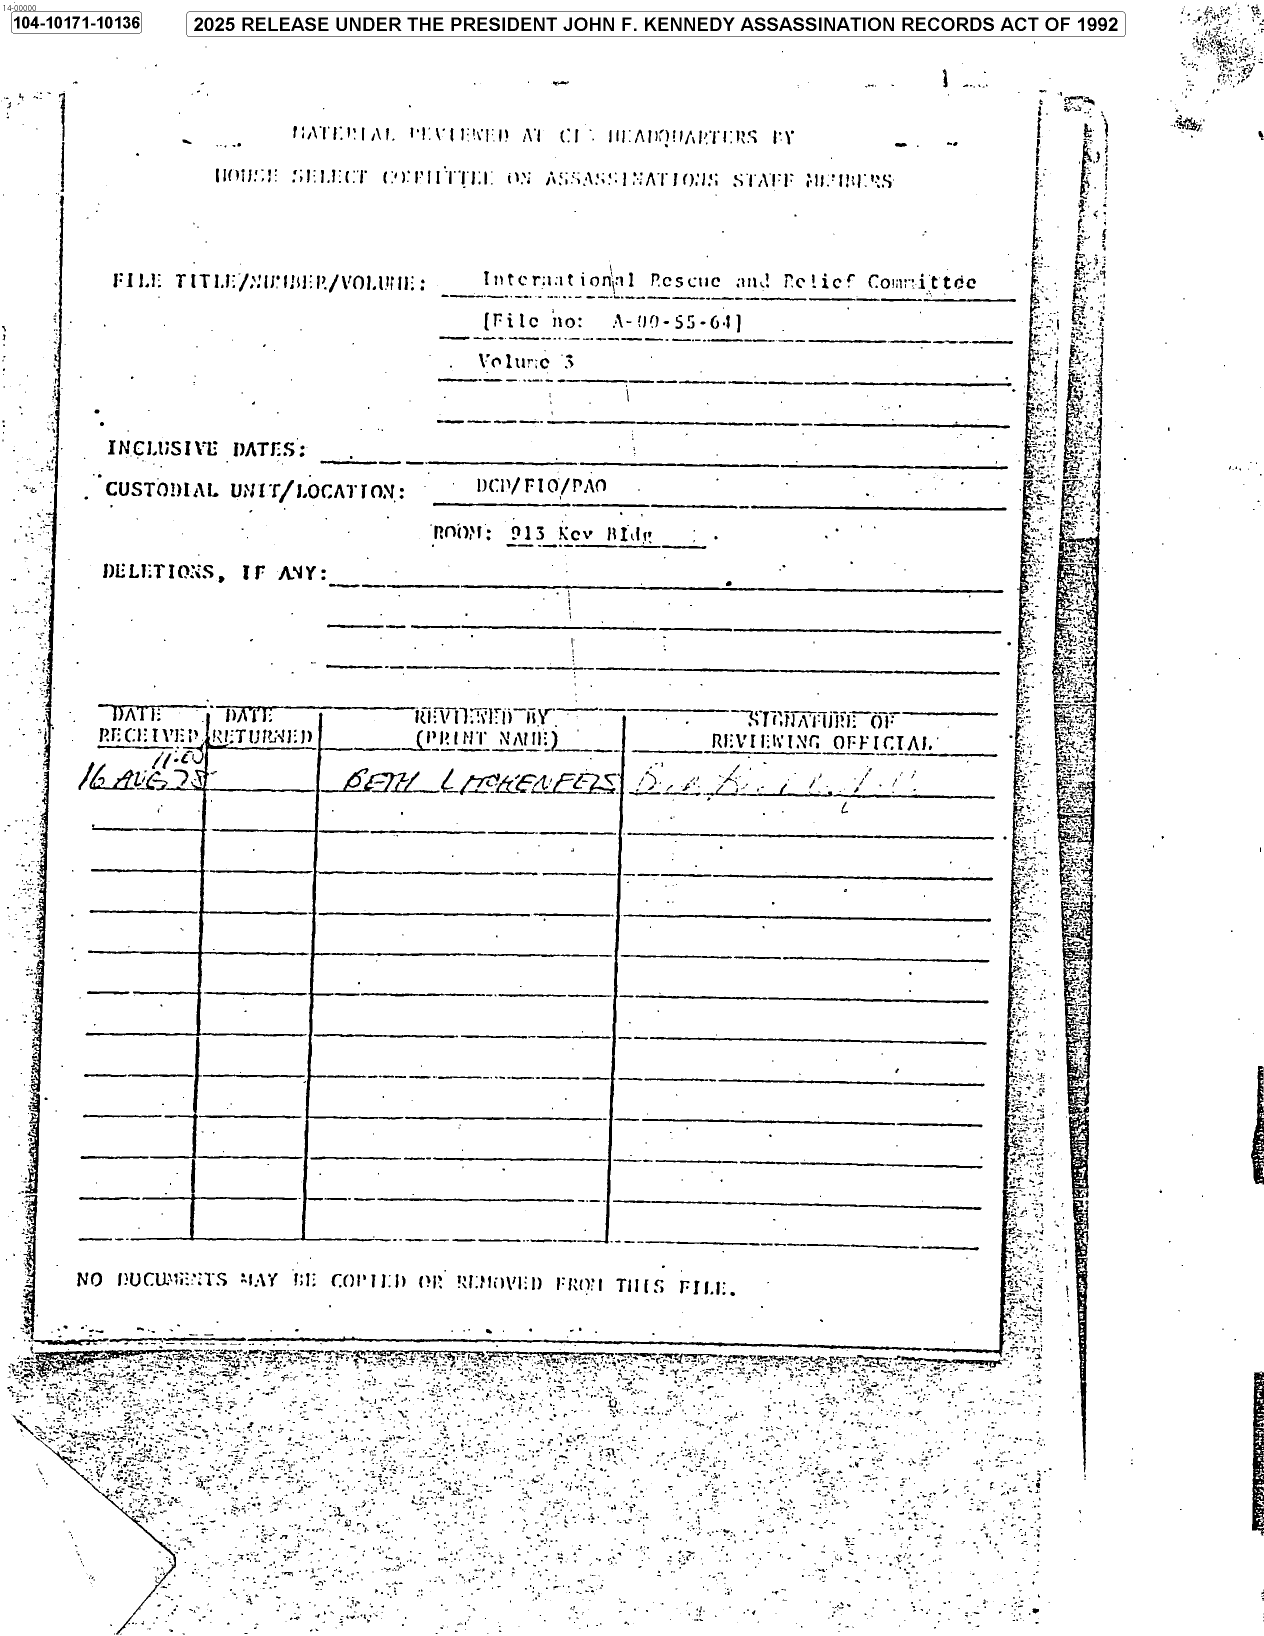 14-00000
104-10171-10136
2025 RELEASE UNDER THE PRESIDENT JOHN F. KENNEDY ASSASSINATION RECORDS ACT OF 1992
MATERIAL REVIEWED AT CIA HEADQUARTERS BY
HOUSE SELECT COMMITTEE ON ASSASSINATIONS STAFF MEMBERS
FILE TITLE/NUMBER/VOLUME: International Rescue and Relief Committee
[File no: A-00-55-64]
Volume 3
INCLUSIVE DATES:
CUSTODIAL UNIT/LOCATION: DCD/FIO/PAO
ROOM: 913 Key Bldg
DELETIONS, IF ANY:
DATE RECEIVED DATE RETURNED REVIEWED BY (PRINT NAME) SIGNATURE OF REVIEWING OFFICIAL
11:00
16 AUG 78 BETH LICHTENFELS
NO DOCUMENTS MAY BE COPIED OR REMOVED FROM THIS FILE.